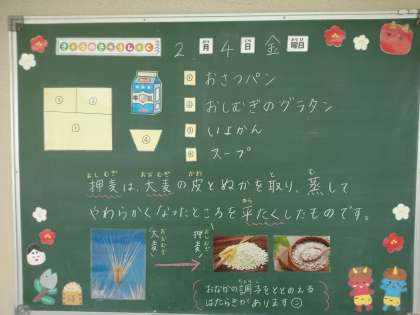 きょうのきゅうしょく
2月4日金曜日
① おさつパン
② おしむぎのグラタン
③ いよかん
④ スープ
③ ② ① ④
押麦は、大麦の皮とぬかを取り、蒸して
やわらかくなったところを平たくしたものです。
大麦
押麦
おなかの調子をととのえる
はたらきがあります